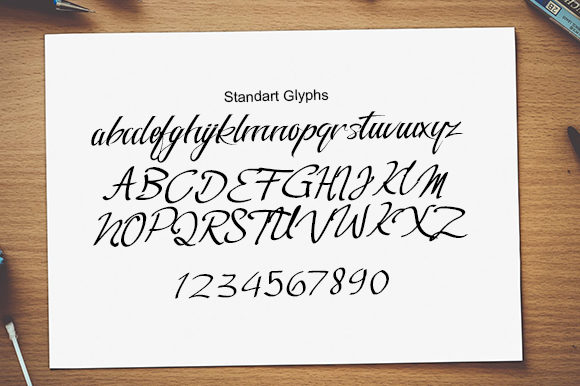 Standart Glyphs
abcdefghijklmnopqrstuvwxyz
ABCDEFGHIJKLM
NOPQRSTUVWXZ
1234567890